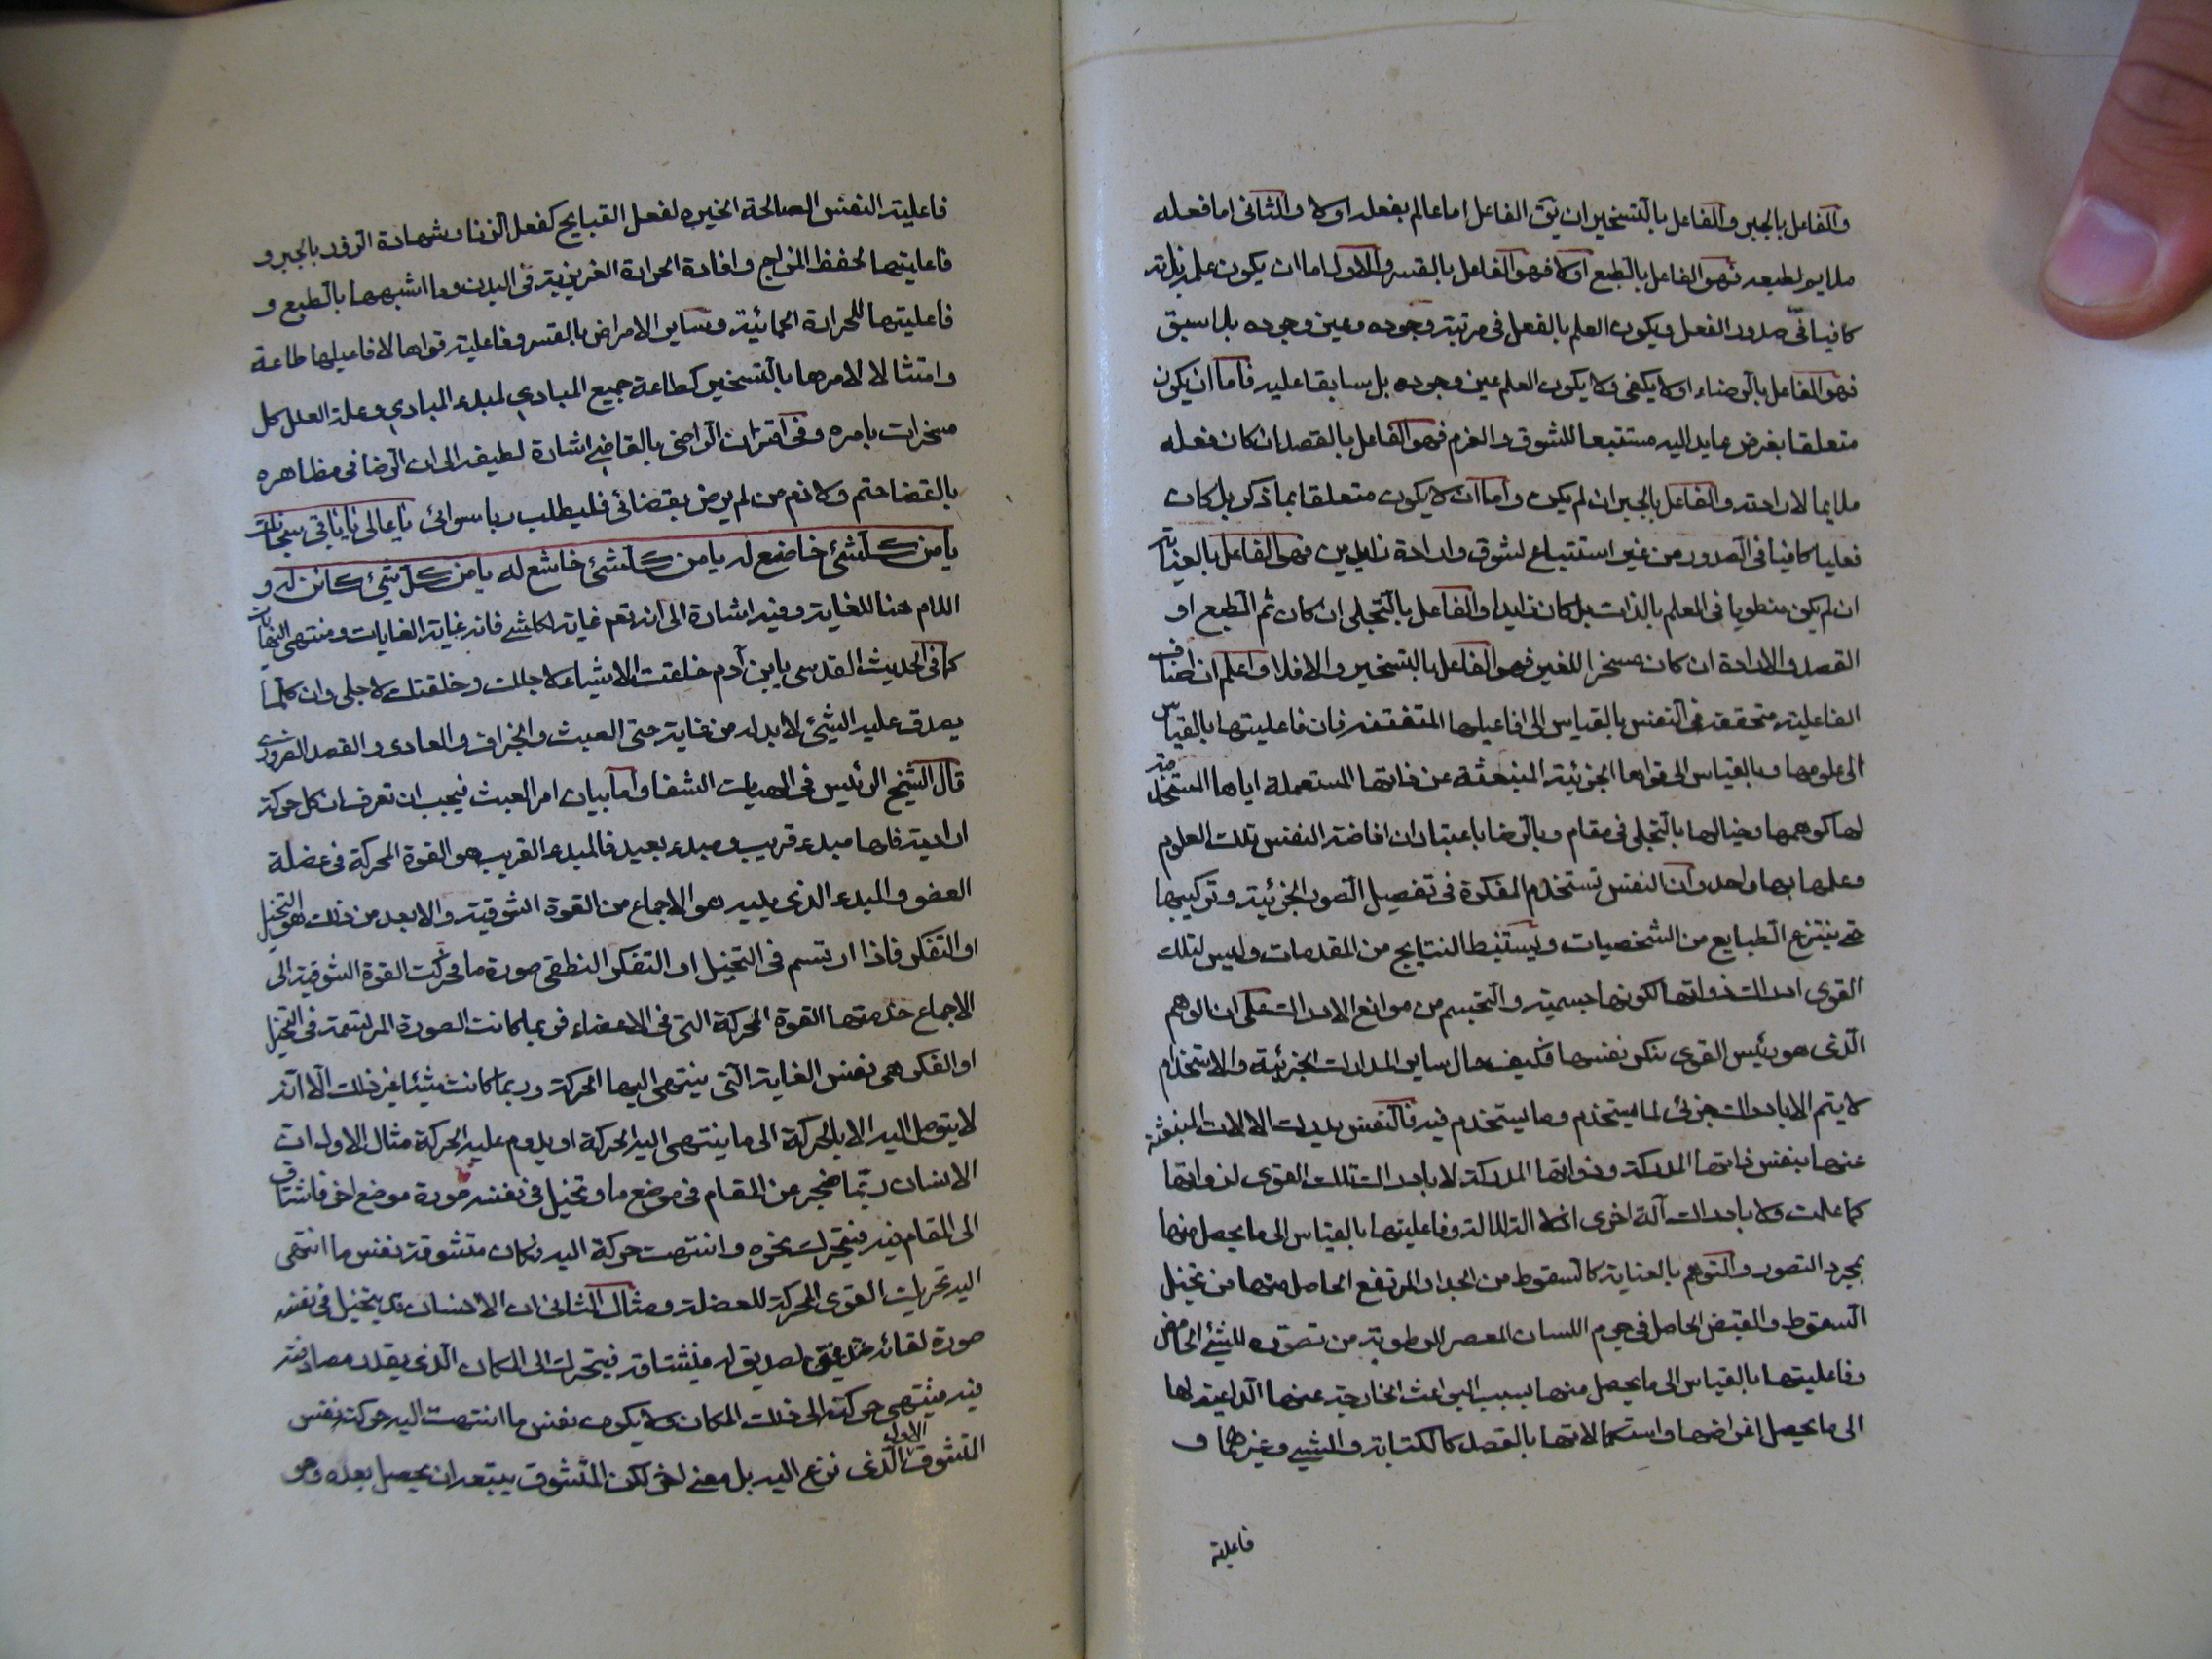 والفاعل بالجبر والفاعل بالتسخير ان يق الفاعل اما عالم بفعله اولا والثانى اما فعله
ملايم لطبعه فهو الفاعل بالطبع اولا فهو الفاعل بالقسر والاول اما ان يكون علمه بذاته
كافيا فى صدور الفعل ويكون العلم بالفعل فى مرتبة وجوده وعين وجوده بلا سبق
فهو الفاعل بالرضاء او لا يكفى ولا يكون العلم عين وجوده بل سابقا عليه فاما ان يكون
متعلقا بغرض عايد اليه مستتبعا للشوق والعزم فهو الفاعل بالقصد ان كان فعله
ملايما لارادته والفاعل بالجبر ان لم يكن واما ان لا يكون متعلقا بما ذكر بل كان
فعليا كافيا فى الصدور من غير استتباع لشوق وارادة زايدين فهو الفاعل بالعناية
ان لم يكن منطويا فى العلم بالذات بل كان زايدا والفاعل بالتجلى ان كان ثم الطبع او
القصد والارادة ان كان مسخرا للغير فهو الفاعل بالتسخير والا فلا واعلم ان اصناف
الفاعلية متحققة فى النفس بالقياس الى افاعيلها المتفننة فان فاعليتها بالقياس
الى علومها وبالقياس الى قواها الجزئية المنبعثة عن ذاتها المستعملة اياها المستخدمة
لها كوهمها وخيالها بالتجلى فى مقام وبالرضا باعتبار ان افاضة النفس تلك العلوم
وعلمها بها واحد وان النفس تستخدم المفكرة فى تفصيل الصور الجزئية وتركيبها
حتى ينتزع الطبايع من الشخصيات ويستنبط النتايج من المقدمات وليس لتلك
القوى ادراك ذواتها لكونها جسمية والتجسم من موانع الادراك على ان الوهم
الذى هو رئيس القوى ينكر نفسها فكيف حال ساير المدارك الجزئية والاستخدام
لا يتم الا بادراك جزئى لما يستخدم وما يستخدم فيه فالنفس يدرك الالات المنبعثة
عنها بنفس ذاتها المدركة وذواتها المدركة لا بادراك تلك القوى لذواتها
كما علمت ولا بادراك آلة اخرى اذ لا الة للالة وفاعليتها بالقياس الى ما يحصل منها
بمجرد التصور والتوهم بالعناية كالسقوط من الجدار المرتفع الحاصل منها من تخيل
السقوط والقبض الحاصل فى جرم اللسان المعصر للرطوبة من تصوره للشئ الحامض
وفاعليتها بالقياس الى ما يحصل منها بسبب البواعث الخارجة عنها الداعية لها
الى ما يحصل اغراضها واستكمالاتها بالقصد كالكتابة والمشى وغيرهما و
فاعلية
فاعلية النفس الصالحة الخيره لفعل القبايح كفعل الزنا وشهادة الزور بالجبر و
فاعليتها لحفظ المزاج وافادة الحرارة الغريزية فى البدن وما اشبهها بالطبع و
فاعليتها للحرارة الحمائية وساير الامراض بالقسر وفاعلية قواها لافاعيلها طاعة
وامتثالا لامرها بالتسخير كطاعة جميع المبادي لمبدء المبادي وعلة العلل كل
مسخرات بامره وفى اقتران الراضى بالقاضى اشارة لطيفة الى ان الرضا فى مظاهره
بالقضا حتم ولازم من لم يرض بقضائى فليطلب ربا سوائى يا عالى يا باقى سبحانك
يا من كل شئ خاضع له يا من كل شئ خاشع له يا من كل شئ كائن له و
اللام هنا للغاية وفيه اشارة الى انه تعم غاية لكل شى فانه غاية الغايات ومنتهى النهايات
كما فى الحديث القدسى يابن آدم خلقت الاشياء لاجلك وخلقتك لاجلى وان كلما
يصدق عليه الشئ لا بد له من غاية حتى العبث والجزاف والعادى والقصد الضرورى
قال الشيخ الرئيس فى الهيات الشفا واما بيان امر العبث فيجب ان تعرف ان كل حركة
ارادية فلها مبدء قريب ومبدء بعيد فالمبدء القريب هو القوة المحركة فى عضلة
العضو والمبدء الذى يليه هو الاجماع من القوة الشوقية والابعد من ذلك هو التخيل
او التفكر فاذا ارتسم فى التخيل او التفكر النطقى صورة ما فحركت القوة الشوقية الى
الاجماع خدمتها القوة المحركة التى فى الاعضاء فربما كانت الصورة المرتسمة فى التخيل
او الفكر هى نفس الغاية التى ينتهى اليها الحركة وربما كانت شيئا غير ذلك الا انه
لا يتوصل اليه الا بالحركة الى ما ينتهى اليه الحركة او يدوم عليه الحركة مثال الاول ان
الانسان ربما ضجر عن المقام فى موضع ما وتخيل فى نفسه صورة موضع اخر فاشتاق
الى المقام فيه فتحرك نحوه وانتهت حركة اليه وكان متشوقة نفس ما انتهى
اليه تحريك القوى المحركة للعضلة ومثال الثانى ان الانسان قد يتخيل فى نفسه
صورة لقائه لصديق له فيشتاقه فيتحرك الى المكان الذى يقدر مصادفته
فيه فينتهى حركته الى ذلك المكان ولا يكون نفس ما انتهت اليه حركته نفس
المتشوق الاول الذى نزع اليه بل معنى اخر لكن المتشوق يتبعه ان يحصل بعده وهو